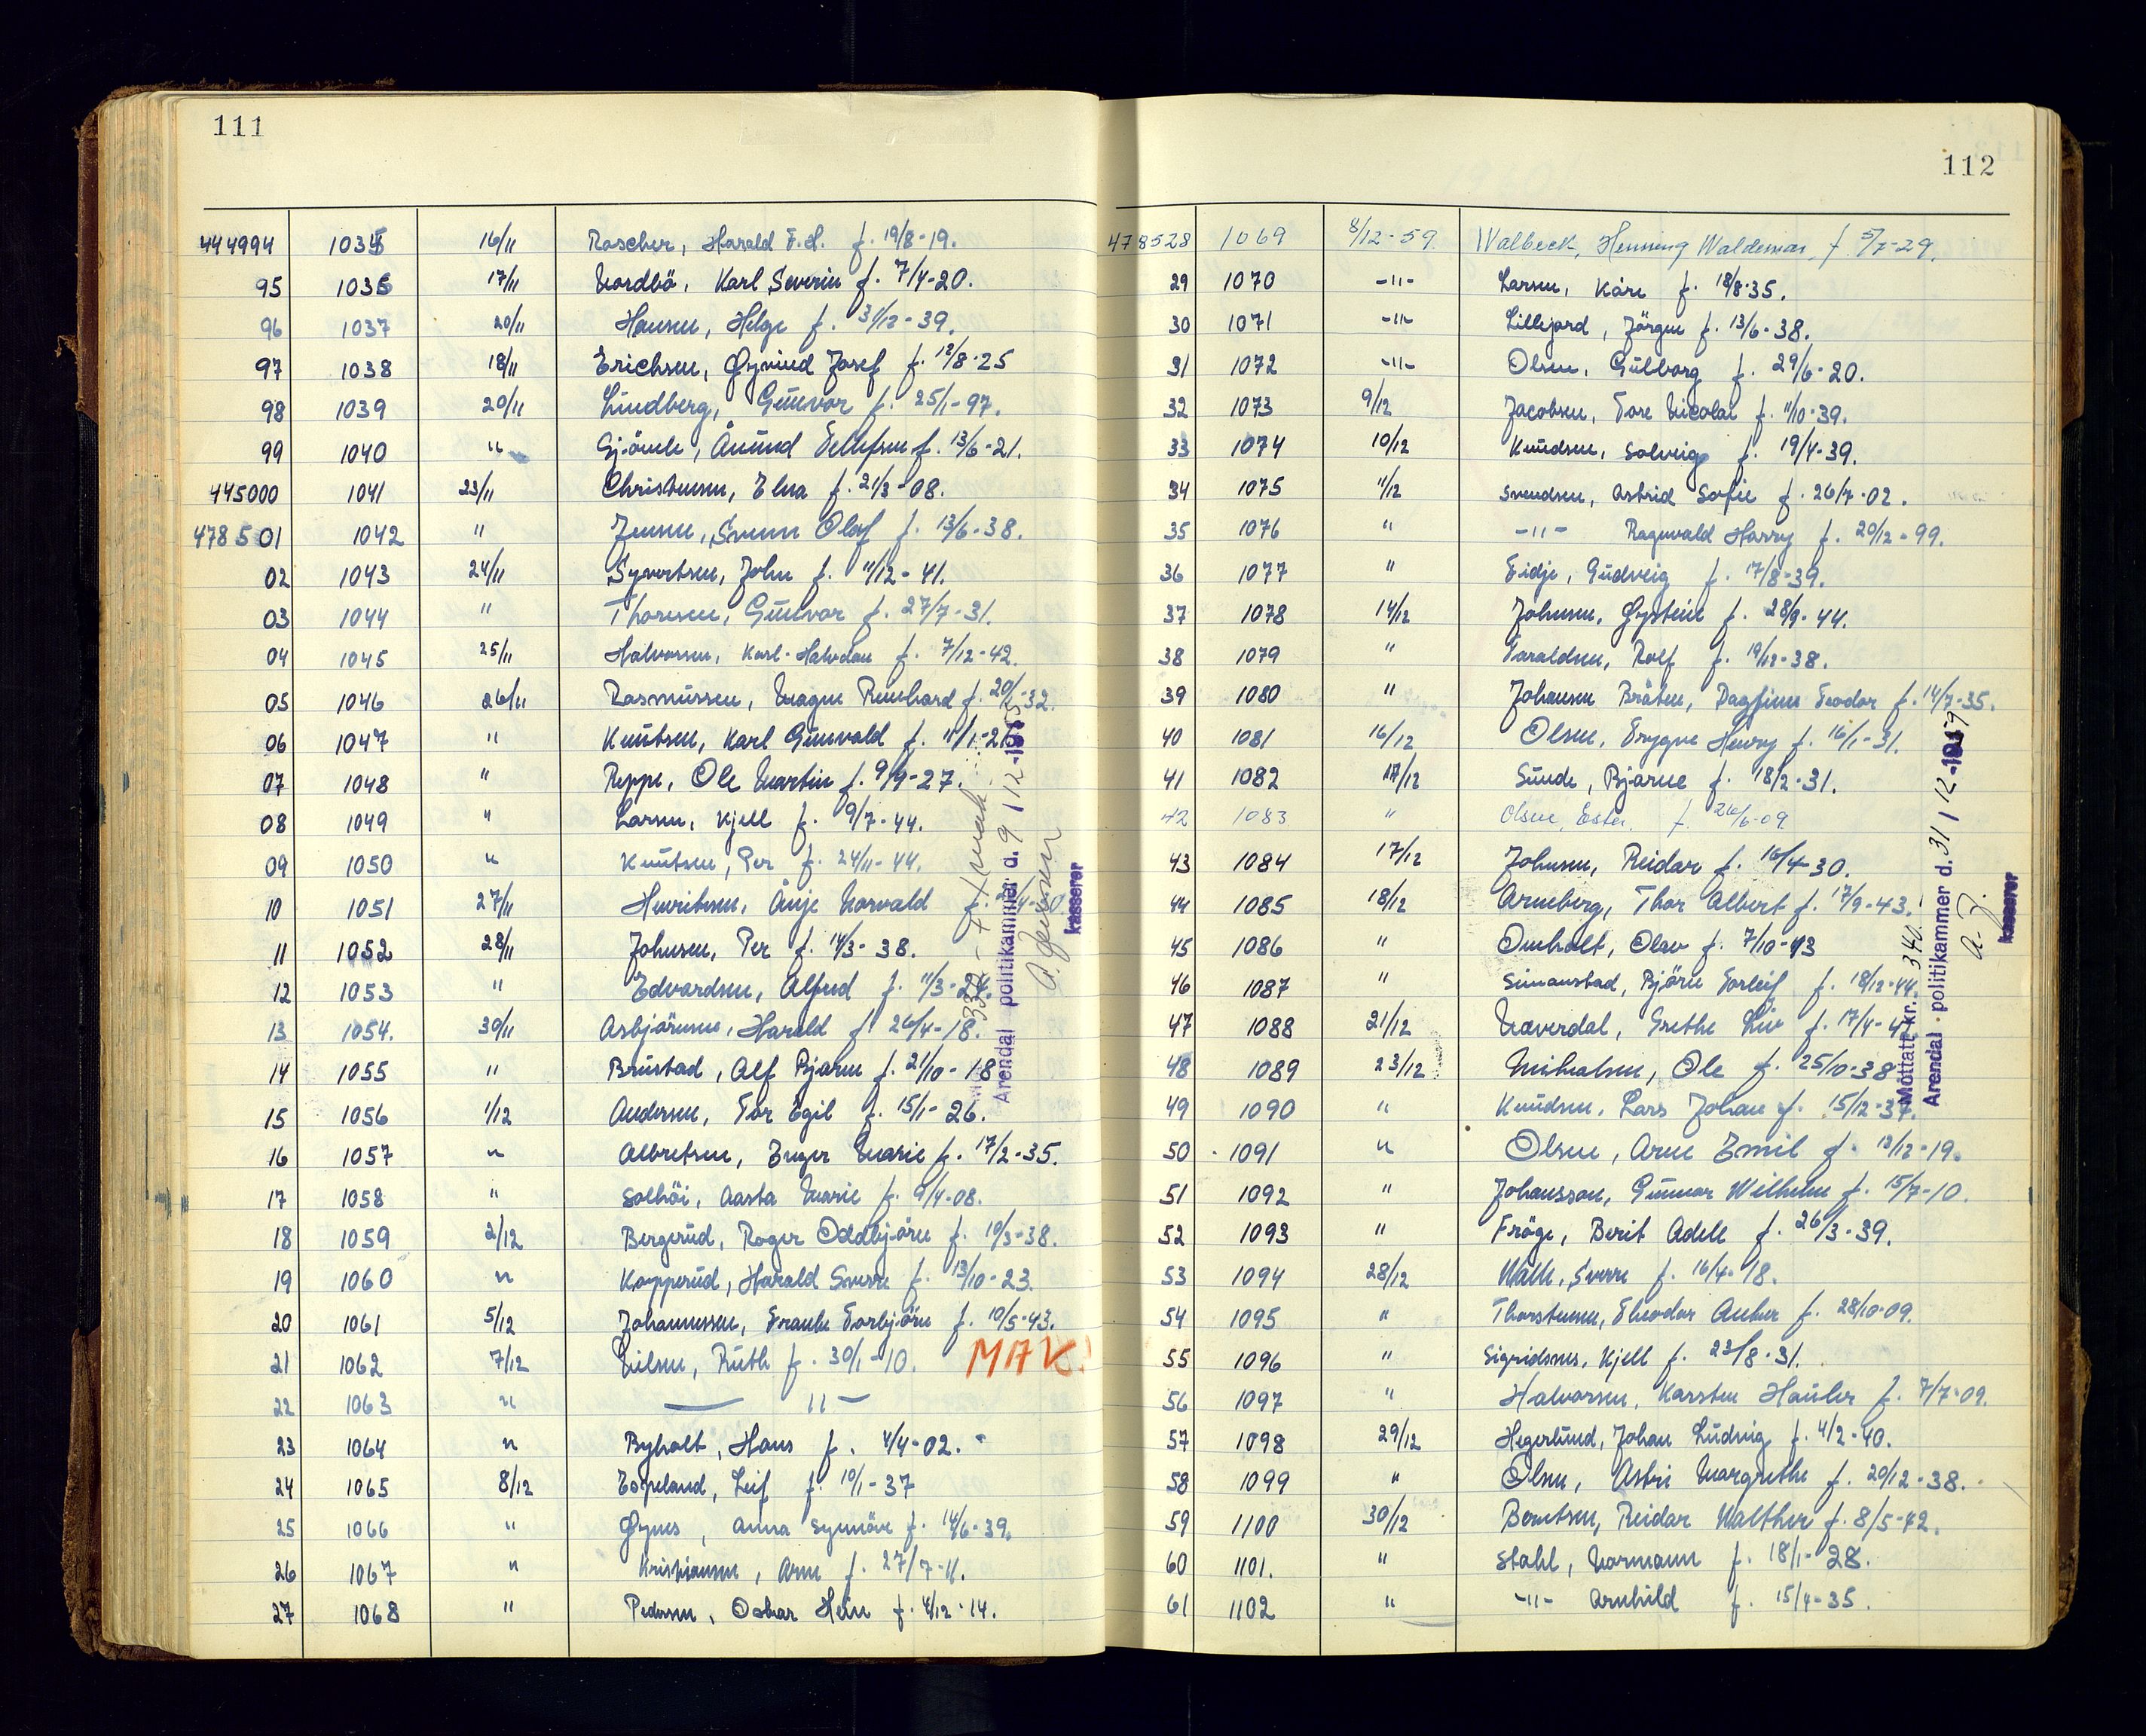 111
444994 1035 16/11 Rascher, Harald F.H. f. 19/8-19.
95 1036 17/11 Nordbö, Karl Severin f. 7/4-20.
96 1037 20/11 Hansen, Helge f. 31/12-39.
97 1038 18/11 Erichsen, Øyvind Josef f. 12/8-25
98 1039 20/11 Lindberg, Gunvor f. 25/1-97.
99 1040 " Gjömle, Ånund Tellefsen f. 13/6-21.
445000 1041 23/11 Christensen, Elna f. 21/3-08.
478501 1042 " Jensen, Svenn Olaf f. 13/6-38.
02 1043 24/11 Syvertsen, John f. 11/12-41.
03 1044 " Thoresen, Gunvor f. 27/7-31.
04 1045 25/11 Halvorsen, Karl-Halvdan f. 7/12-42.
05 1046 26/11 Rasmussen, Magne Reinhard f. 20/ -32.
06 1047 " Knutsen, Karl Gunvald f. 11/1-
07 1048 " Reppe, Ole Martin f. 9/9-27.
08 1049 " Larsen, Kjell f. 9/7-44.
09 1050 " Knutsen, Per f. 24/11-44.
10 1051 27/11 Henriksen, Norvald f.
11 1052 28/11 Johnsen, Per f. 14/3-38.
12 1053 " Edvardsen, Alfred f. 11/3-24.
13 1054. 30/11 Asbjörnsen, Harald f. 26/4-18.
14 1055 " Brustad, Alf Bjarne f. 21/10-18
15 1056 1/12 Andersen, Tor Egil f. 15/1-26.
16 1057 " Albretsen, Inger Marie f. 17/2-35.
17 1058 " Solhöi, Aasta Marie f. 9/4-08.
18 1059 2/12 Bergerud, Roger Oddbjörn f. 10/3-38.
19 1060 " Kopperud, Harald Sverre f. 13/10-23.
20 1061 5/12 Johannessen, Torbjörn f. 10/5-43.
21 1062 7/12 Nilsen, Ruth f. 30/1-10. MAK!
22 1063 " — " —
23 1064 " Byholt, Hans f. 4/4-02.
24 1065 8/12 Espeland, Leif f. 10/1-37
25 1066 " Øynes, Anna Synnöve f. 14/6-39.
26 1067 " Kristiansen, Arne f. 27/7-11.
27 1068 " Pedersen, Oskar Hein f. 4/12-14.
Arendal politikammer d. 9/12-195
A. Jensen
kasserer
112
478528 1069 8/12-59. Walbeck, Henning Waldemar, f. 5/7-29.
29 1070 -"- Larsen, Kåre f. 18/8-35.
30 1071 -"- Lillejord, Jörgen f. 13/6-38.
31 1072 -"- Olsen, Gulborg f. 29/6-20.
32 1073 9/12 Jacobsen, Tore Nicolai f. 11/10-39.
33 1074 10/12 Knudsen, Solveig f. 19/4-39.
34 1075 11/12 Svendsen, Astrid Sofie f. 26/7-02.
35 1076 " -"- Ragnvald Harry f. 20/12-99.
36 1077 " Eidje, Gudveig f. 17/8-39.
37 1078 14/12 Johnsen, Øystein f. 28/9-44.
38 1079 " Taraldsen, Rolf f. 19/12-38.
39 1080 " Johansen Bråten, Dagfinn Teodor f. 14/7-35.
40 1081 16/12 Olsen, Trygve Henry f. 16/1-31.
41 1082 17/12 Sunde, Bjarne f. 18/2-31.
42 1083 " Olsen, Ester. f. 26/6-09
43 1084 17/12 Johnsen, Reidar f. 16/4-30.
44 1085 18/12 Arneberg, Thor Albert f. 17/9-43.
45 1086 " Omholt, Olav f. 7/10-43
46 1087 " Simonstad, Björn Torleif f. 18/12-44.
47 1088 21/12 Naverdal, Grethe Liv f. 17/4-4
48 1089 23/12 Mikalsen, Ole f. 25/10-38
49 1090 " Knudsen, Lars Johan f. 15/12-37.
50 1091 " Olsen, Arne Emil f. 13/12-19.
51 1092 " Johansson, Gunnar Wilhelm f. 15/7-10.
52 1093 " Fröge, Berit Adell f. 26/3-39.
53 1094 28/12 Walle, Sverre f. 16/4-18.
54 1095 " Thorstensen, Theodor Anker f. 28/10-09.
55 1096 " Sigridsnes, Kjell f. 23/8-31.
56 1097 " Halvorsen, Karsten Hauler f. 7/7-09.
57 1098 29/12 Hegerlund, Johan Ludvig f. 4/2-40.
58 1099 " Olsen, Astri Margrethe f. 20/12-38.
59 1100 30/12 Berntsen, Reidar Walther f. 8/5-42.
60 1101. " Stahl, Normann f. 18/1-28.
61 1102 " -"- Arnhild f. 15/4-35.
Mottatt kr. 340.
Arendal politikammer d. 31/12-1959
A. J.
kasserer